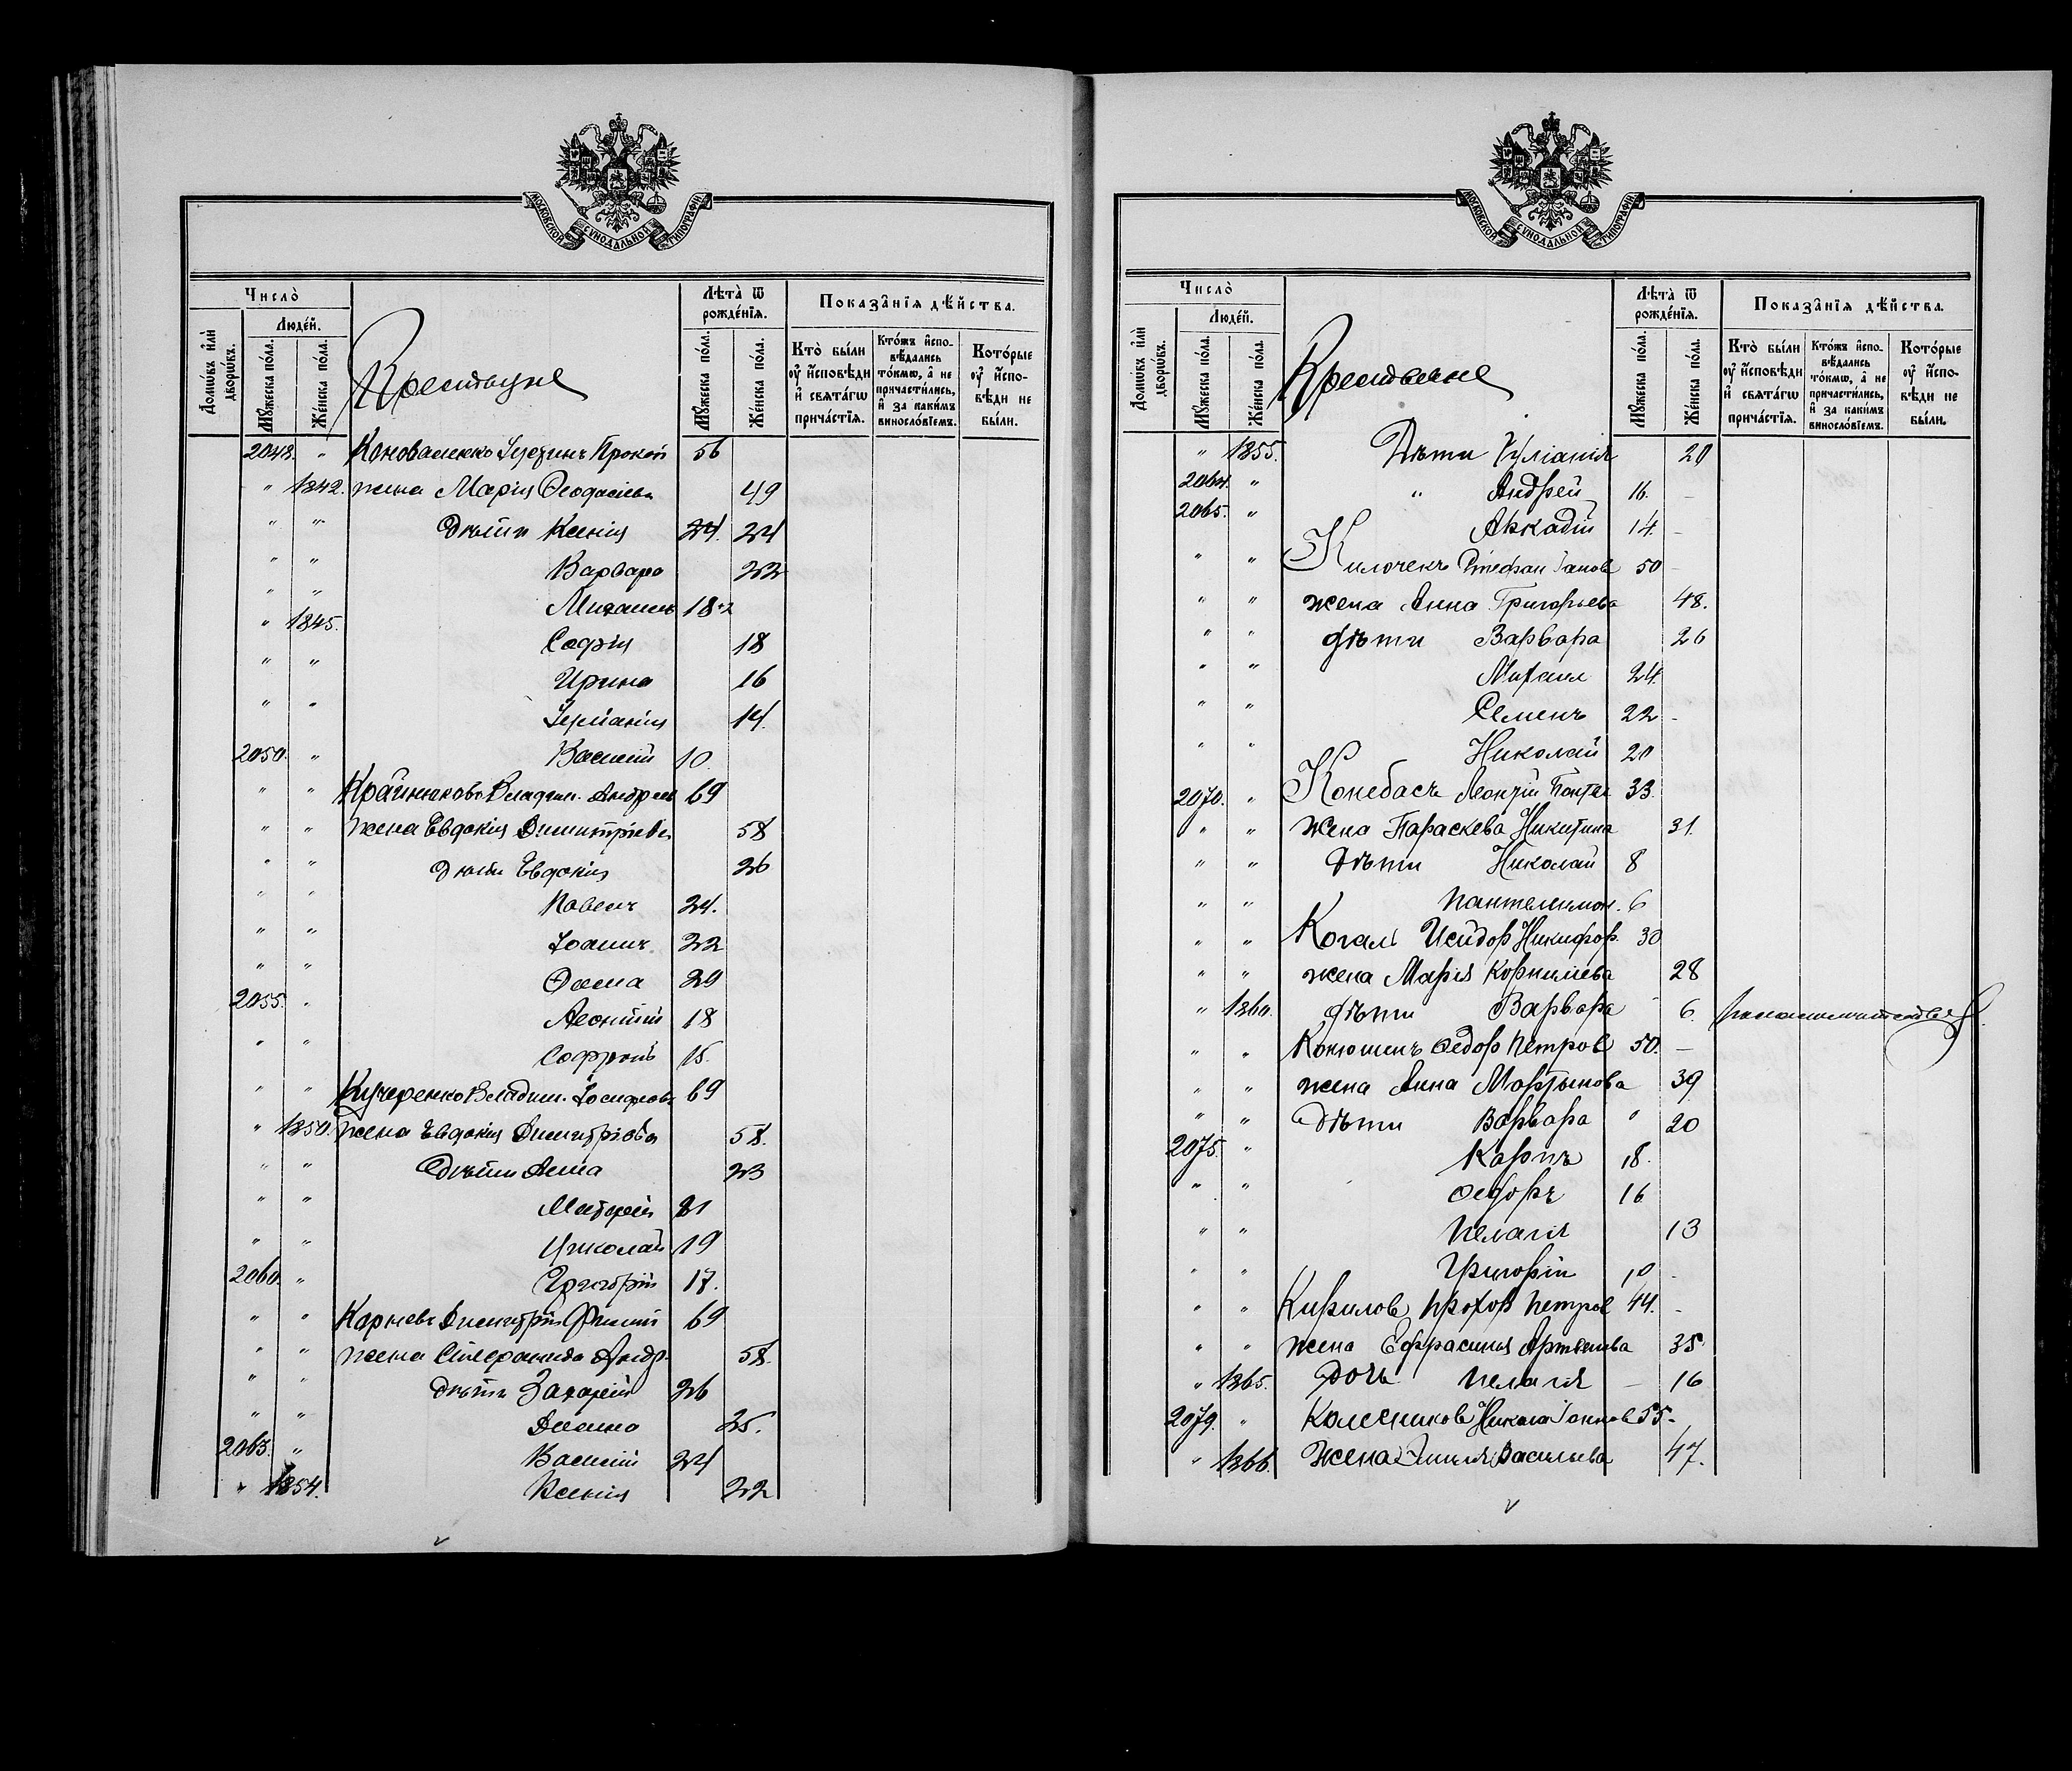 МОСКОВСКОЙ СУНОДАЛЬНОЙ ТИПОГРАФІИ
Число̀
Домѡ́въ и҆лѝ дворѡ́въ.
Люде́й.
Мꙋ́жеска по́ла.
Же́нска по́ла.
Крестьяне
Лѣта̀ ѿ рожде́нїѧ.
Мꙋ́жеска по́ла.
Же́нска по́ла.
Показа̑нїѧ дѣ́йства.
Кто̀ бы́ли оу҆ и҆сповѣ́ди и҆ свѧта́гѡ прича́стїѧ.
Кто́жъ и҆спо-вѣ́дались то́кмѡ, а҆ не причасти́лись, и҆ за каки́мъ винословїемъ.
Кото́рые оу҆ и҆спо-вѣ́ди не бы́ли.
2048. " Коноваленко Іустинъ Прокоп 56
" 1842. жена Марія Ѳеодосіева 49
" " Дѣти Ксенія 24. 24
" " Варвара 22
" " Михаилъ 18
" 1845. Софія 18
" " Ирина 16
" " Іуліанія 14.
2050. " Василій 10
" " Крайнюковъ Владим. Андреев 69
" " жена Евдокія Димитріева 58
" " Дѣти Евдокія 26
" " Павелъ 24.
" " Іоаннъ 22
" " Ѳома 20
2055. " Леонтій 18
" " Софроній 15.
" " Кучеренко Владим. Іосифовъ 69
" 1850. жена Евдокія Димитріева 58.
" " Дѣти Анна 23
" " 21
" " Николай 19
2060. " Григорій 17.
" " Карневъ Димитрій 69
" " жена Андр. 58.
" " Дѣти Захарій 26
" " 25.
2063. " Василій 24
" 1854. Ксенія 22
МОСКОВСКОЙ СУНОДАЛЬНОЙ ТИПОГРАФІИ
Число̀
Домѡ́въ и҆лѝ дворѡ́въ.
Люде́й.
Мꙋ́жеска по́ла.
Же́нска по́ла.
Крестьяне
Лѣта̀ ѿ рожде́нїѧ.
Мꙋ́жеска по́ла.
Же́нска по́ла.
Показа̑нїѧ дѣ́йства.
Кто̀ бы́ли оу҆ и҆сповѣ́ди и҆ свѧта́гѡ прича́стїѧ.
Кто́жъ и҆спо-вѣ́дались то́кмѡ, а҆ не причасти́лись, и҆ за каки́мъ винословїемъ.
Кото́рые оу҆ и҆спо-вѣ́ди не бы́ли.
" 1855. Дѣти Іуліанія 20
2064. " " Андрей 16.
2065. " Аркадій 14.
" " Килочекъ Стефан Іанов 50
" " жена Анна Григорьева 48.
" " дѣти Варвара 26
" " Михаил 24.
" " Семенъ 22
" " Николай 20
2070. " Конебасъ Леонтій Пантел 33.
" " жена Параскева Никитина 31.
" " дѣти Николай 8
" " Пантелимон. 6
" " Когал Исидор Никифор. 30
" " жена Марія Корнилиева 28
" 1860. дѣти Варвара 6.
" " Конюшенъ Ѳедор Петров 50.
" " жена Анна Мартынова 39
" " дѣти Варвара " 20
2075. " Карпъ 18.
" " Ѳедоръ 16
" " Пелагія 13
" " Григорій 10
" " Кирилов Прохор Петров 44.
" " жена Ефрасинія Артемиева 35.
" 1865. дочь Пелагія 16
2079. " Колесников Никола Іоаннов 55.
" 1866. жена Васильева 47.